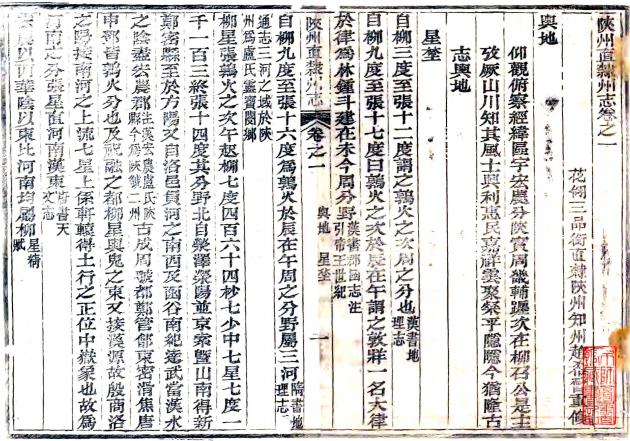 陝州直隸州志卷之一
花翎三品銜直隸陝州知州趙希曾重修
輿地
仰觀俯察經緯區宇宏農分陝實周畿輔躔次在柳召公是主
攷厥山川知其風土興利惠民嘉祥雲聚粲乎隱隱今猶隆古
志輿地
星埜
自柳三度至張十二度謂之鶉火之次周之分也漢書地理志
自柳九度至張十七度曰鶉火之次於辰在午謂之敦牂一名大律
於律為林鍾斗建在未今周分野漢書郡國志注引帝王世紀
陝州直隸州志 卷之一 輿地 星埜 一
自柳九度至張十六度為鶉火於辰在午周之分野屬三河隋書地理志
通志三河之域於陝州為盧氏靈寶閿鄉
柳星張鶉火之次午起柳七度四百六十四秒七少中七星七度一
千一百三終張十四度其分野北自滎澤滎陽並京索暨山南得新
鄭密縣至於方陽又自洛邑負河之南西及函谷南紀逹武當漢水
之陰盡宏農郡注漢宏農盧氏陝縣今為陝虢二州古成周虢鄭管鄶東密滑焦唐
申鄧皆鶉火分也及祝融之都柳星輿鬼之東又接漢源故殷商洛
之陽接南河之上流七星上係軒轅得土行之正位中嶽象也故為
河南之分張星直河南漢東唐書天文志
宏農以西華陰以東比河南均屬柳星賦